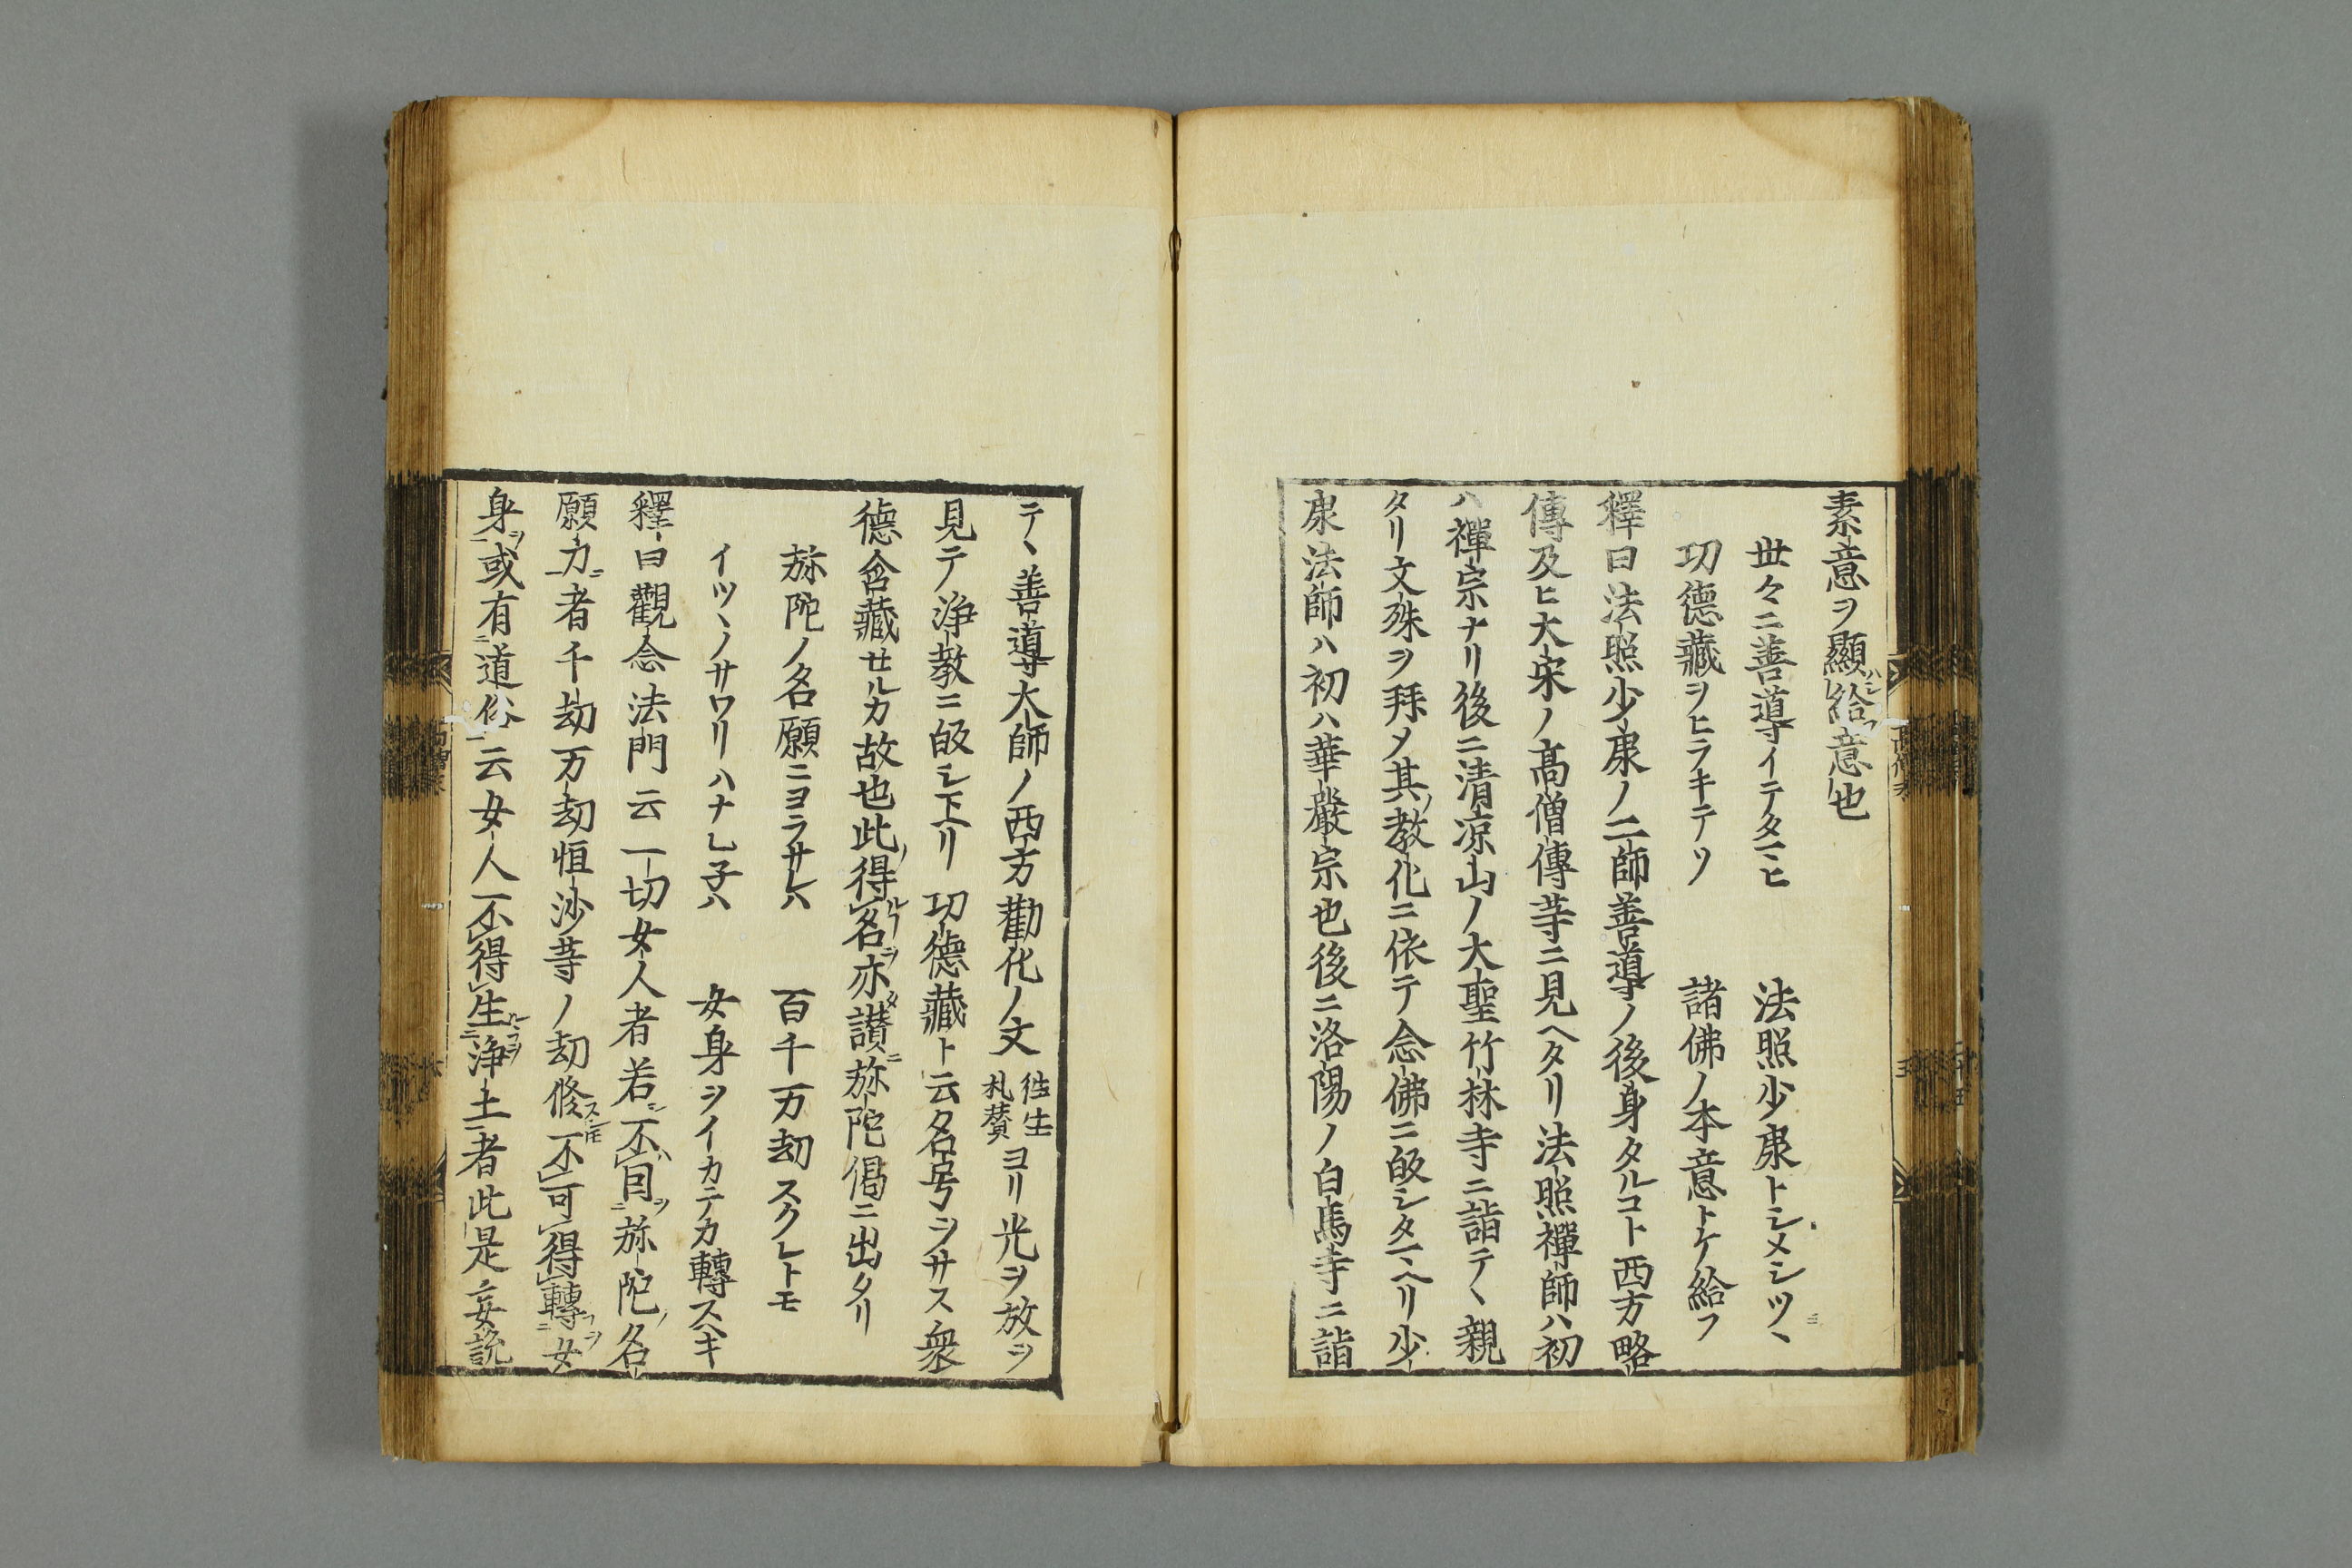 素意ヲ顯ハシ給フ意也
世々ニ善導イテタマヒ 法照少康トシメシツヽ
功德藏ヲヒラキテソ 諸佛ノ本意トケ給フ
釋曰法照少康ノ二師善導ノ後身タルコト西方略
傳及ヒ大宋ノ髙僧傳䓁ニ見ヘタリ法照禪師ハ初
ハ禪宗ナリ後ニ清凉山ノ大聖竹林寺ニ詣テヽ親
タリ文殊ヲ拜メ其ノ教化ニ依テ念佛ニ皈シタマヘリ少
康法師ハ初ハ華嚴宗也後ニ洛陽ノ白馬寺ニ詣
テヽ善導大師ノ西方勸化ノ文往生礼賛ヨリ光ヲ放ヲ
見テ浄教ニ皈シ下ヘリ功德藏ト云タ名号ヲサス衆
德含藏せルカ故也此ノ得ルヿヲ名亦タ讃ニ弥陀偈ニ出タリ
弥陀ノ名願ニヨラサレハ 百千万劫スクレトモ
イツヽノサワリハナレ子ハ 女身ヲイカテカ轉スヘキ
釋曰觀念法門云一切女人者若シ不ハ因ヲニ弥陀ノ名
願力ニ者千劫万劫恒沙䓁ノ劫修ス𪜈不可得轉フヿヲニ女
身ヲ或有ニ道俗云女人不得生ルヿヲニ浄土者此是妄說